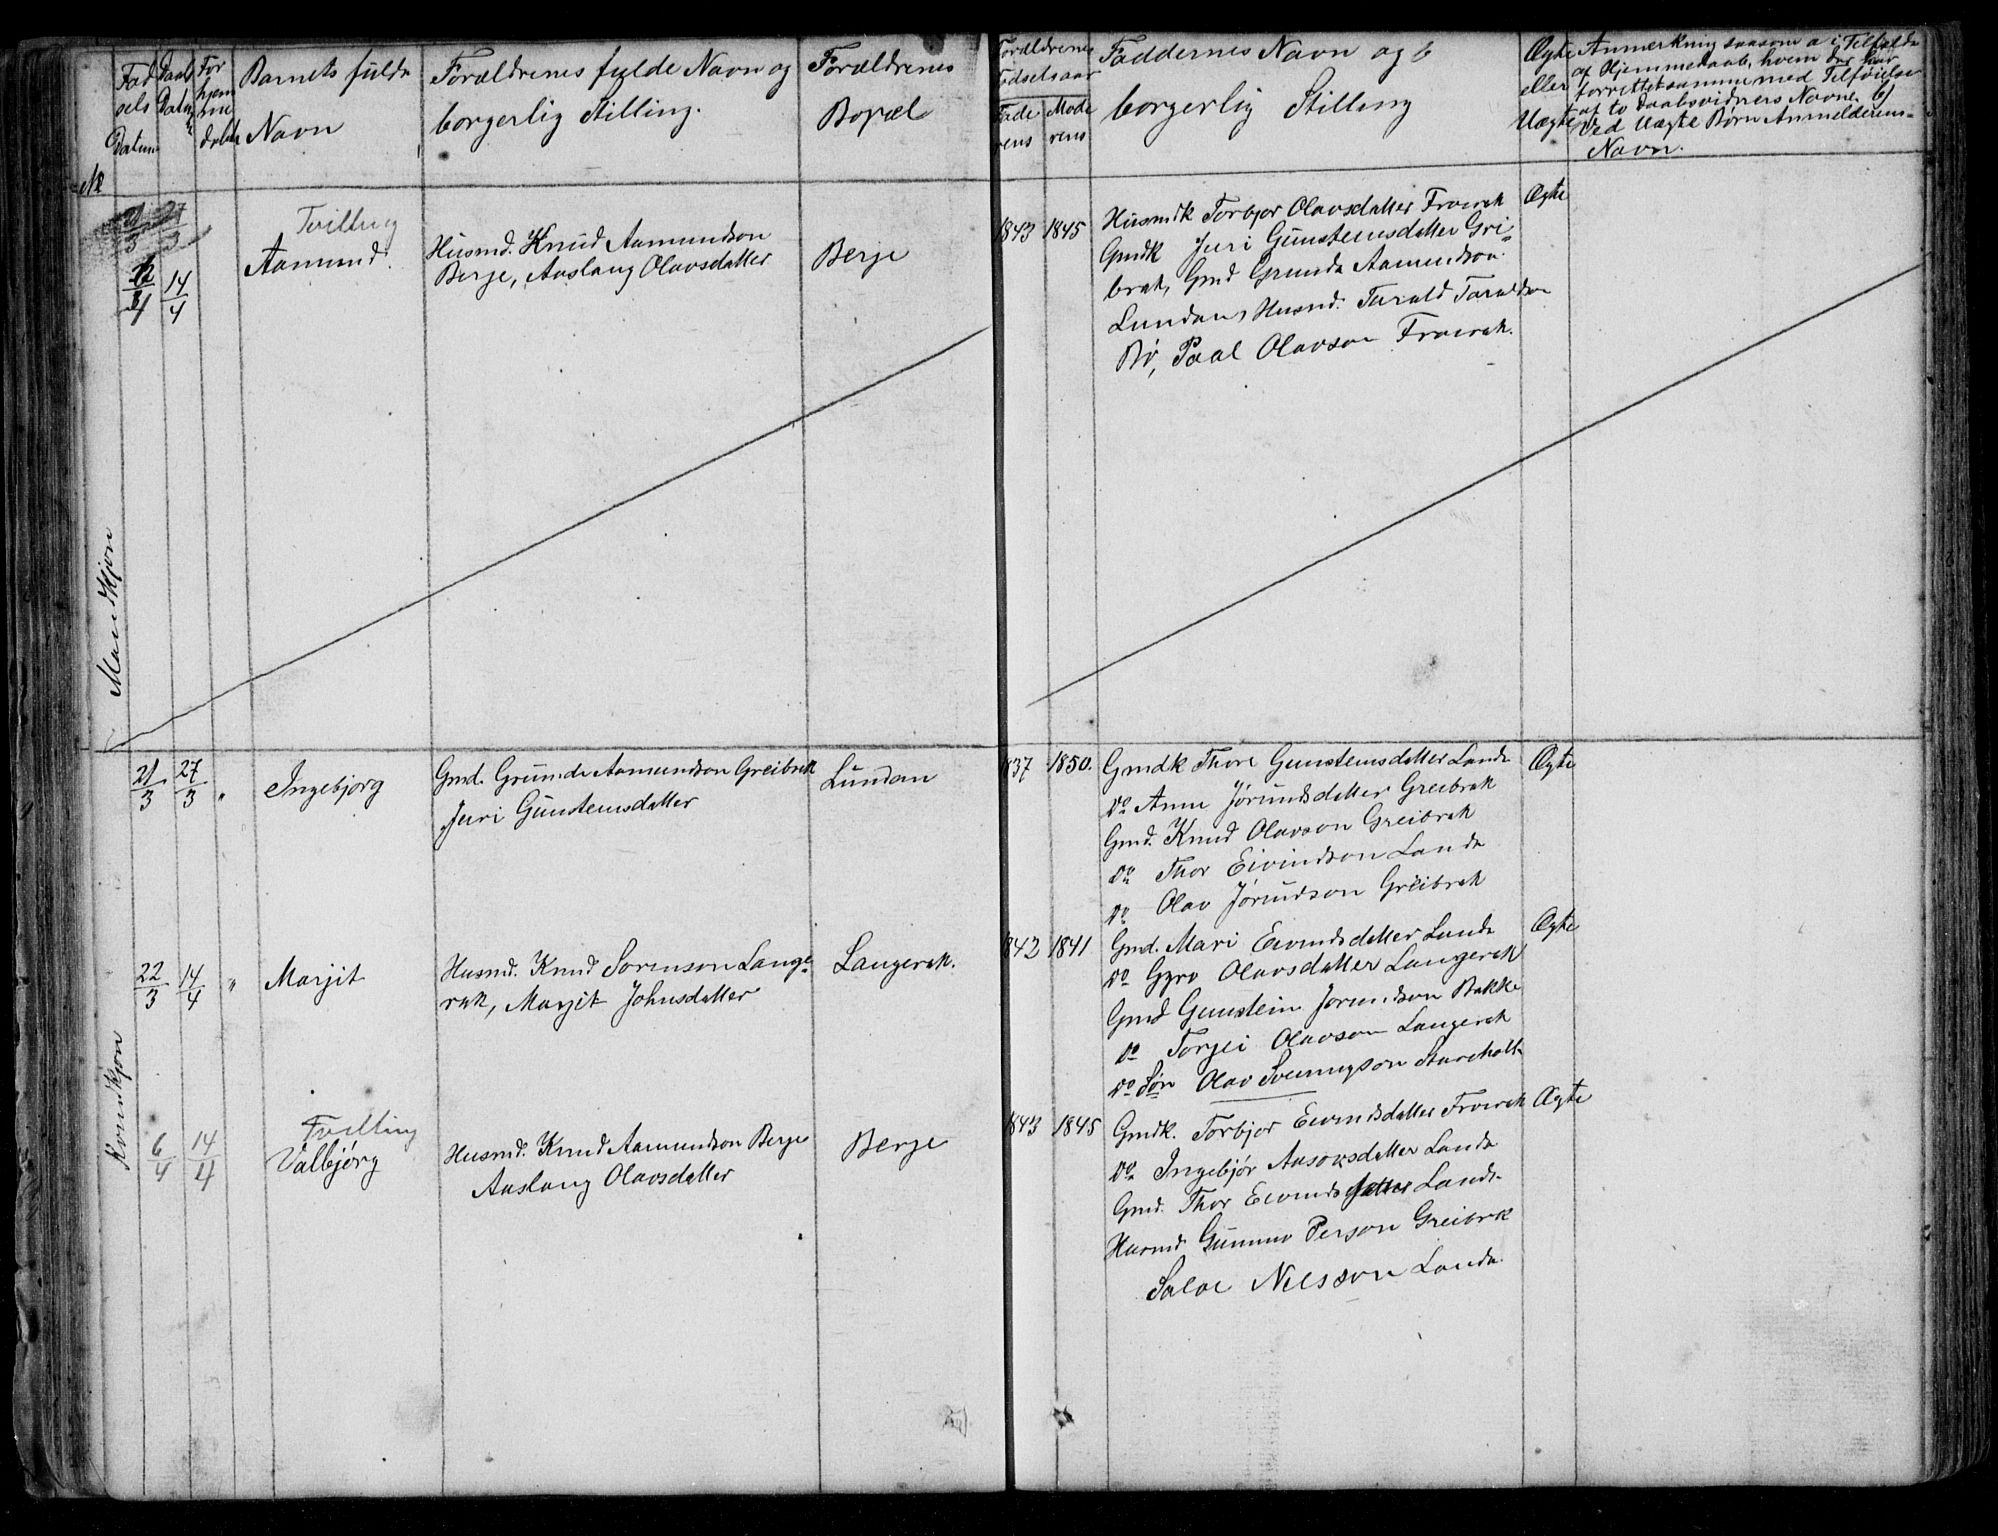 Fød
sels
Datum
Daabs
Datum
For
hjem
me
døbte
Barnets fulde
Navn
Forældrenes fulde Navn og
borgerlig Stilling.
Forældrenes
Bopæl
Forældrenes
Fødselsaar
Fade
rens
Mode
rens
Faddernes Navn og
borgerlig Stilling
Ægte
eller
Uægte
Anmerkning saasom a i Tilfælde
af Hjemmedaab, hvem der har
forrettet samme med Tilføielse
af to Daabsvidners Navne. b)
Ved Uægte Børn Anmelderens
Navn.
No
Mandkjøn
21/3 27/3
4 14/4
Tvilling
Aamund.
Husmd. Knud Aamundson
Berge, Aaslaug Olavsdatter
Berge
1843 1845
Husmdk Torbjor Olavsdatter Froirak
Gmdk Juri Gunsteinsdatter Gri-
brok, Gmd Grunde Aamundson
Lundan, Husmd. Tarald Taraldson
Bø, Paal Olavson Froirak.
Ægte
Kvindkjøn
21/3 27/3 "
Ingebjorg
Gmd. Grunde Aamundson Greibrok
Juri Gunsteinsdatter
Lundan
837 1850.
Gmdk Thore Gunsteinsdatter Landa
Do Anne Jørundsdatter Greibrok
Gmd. Knud Olavson Greibrok
Do Thor Eivindson Landa
Do Olav Jørundson Greibrok
Ægte
22/3 14/4 "
Marjit
Husmd. Knud Sorenson Lange-
rak, Marjit Johnsdatter
Langerak.
842 1841
Gmd. Mari Eivindsdatter Landa
Do Gyro Olavsdatter Langerak
Gmd Gunstein Jorundson Bakke
Do Torgei Olavson Langerak
Do Søn Olav Sveinugson
Ægte
6/4 14/4
Tvilling
Valbjørg
Husmd. Knud Aamundson Berge
Aaslaug Olavsdatter
Berge
1843 1845
Gmdk. Torbjor Eivindsdatter Froirak
Do Ingebjør Landa
Gmd. Thor Landa
Husmd Gunnuv Person Greibrok
Salve Nilsson Landa.
Ægte